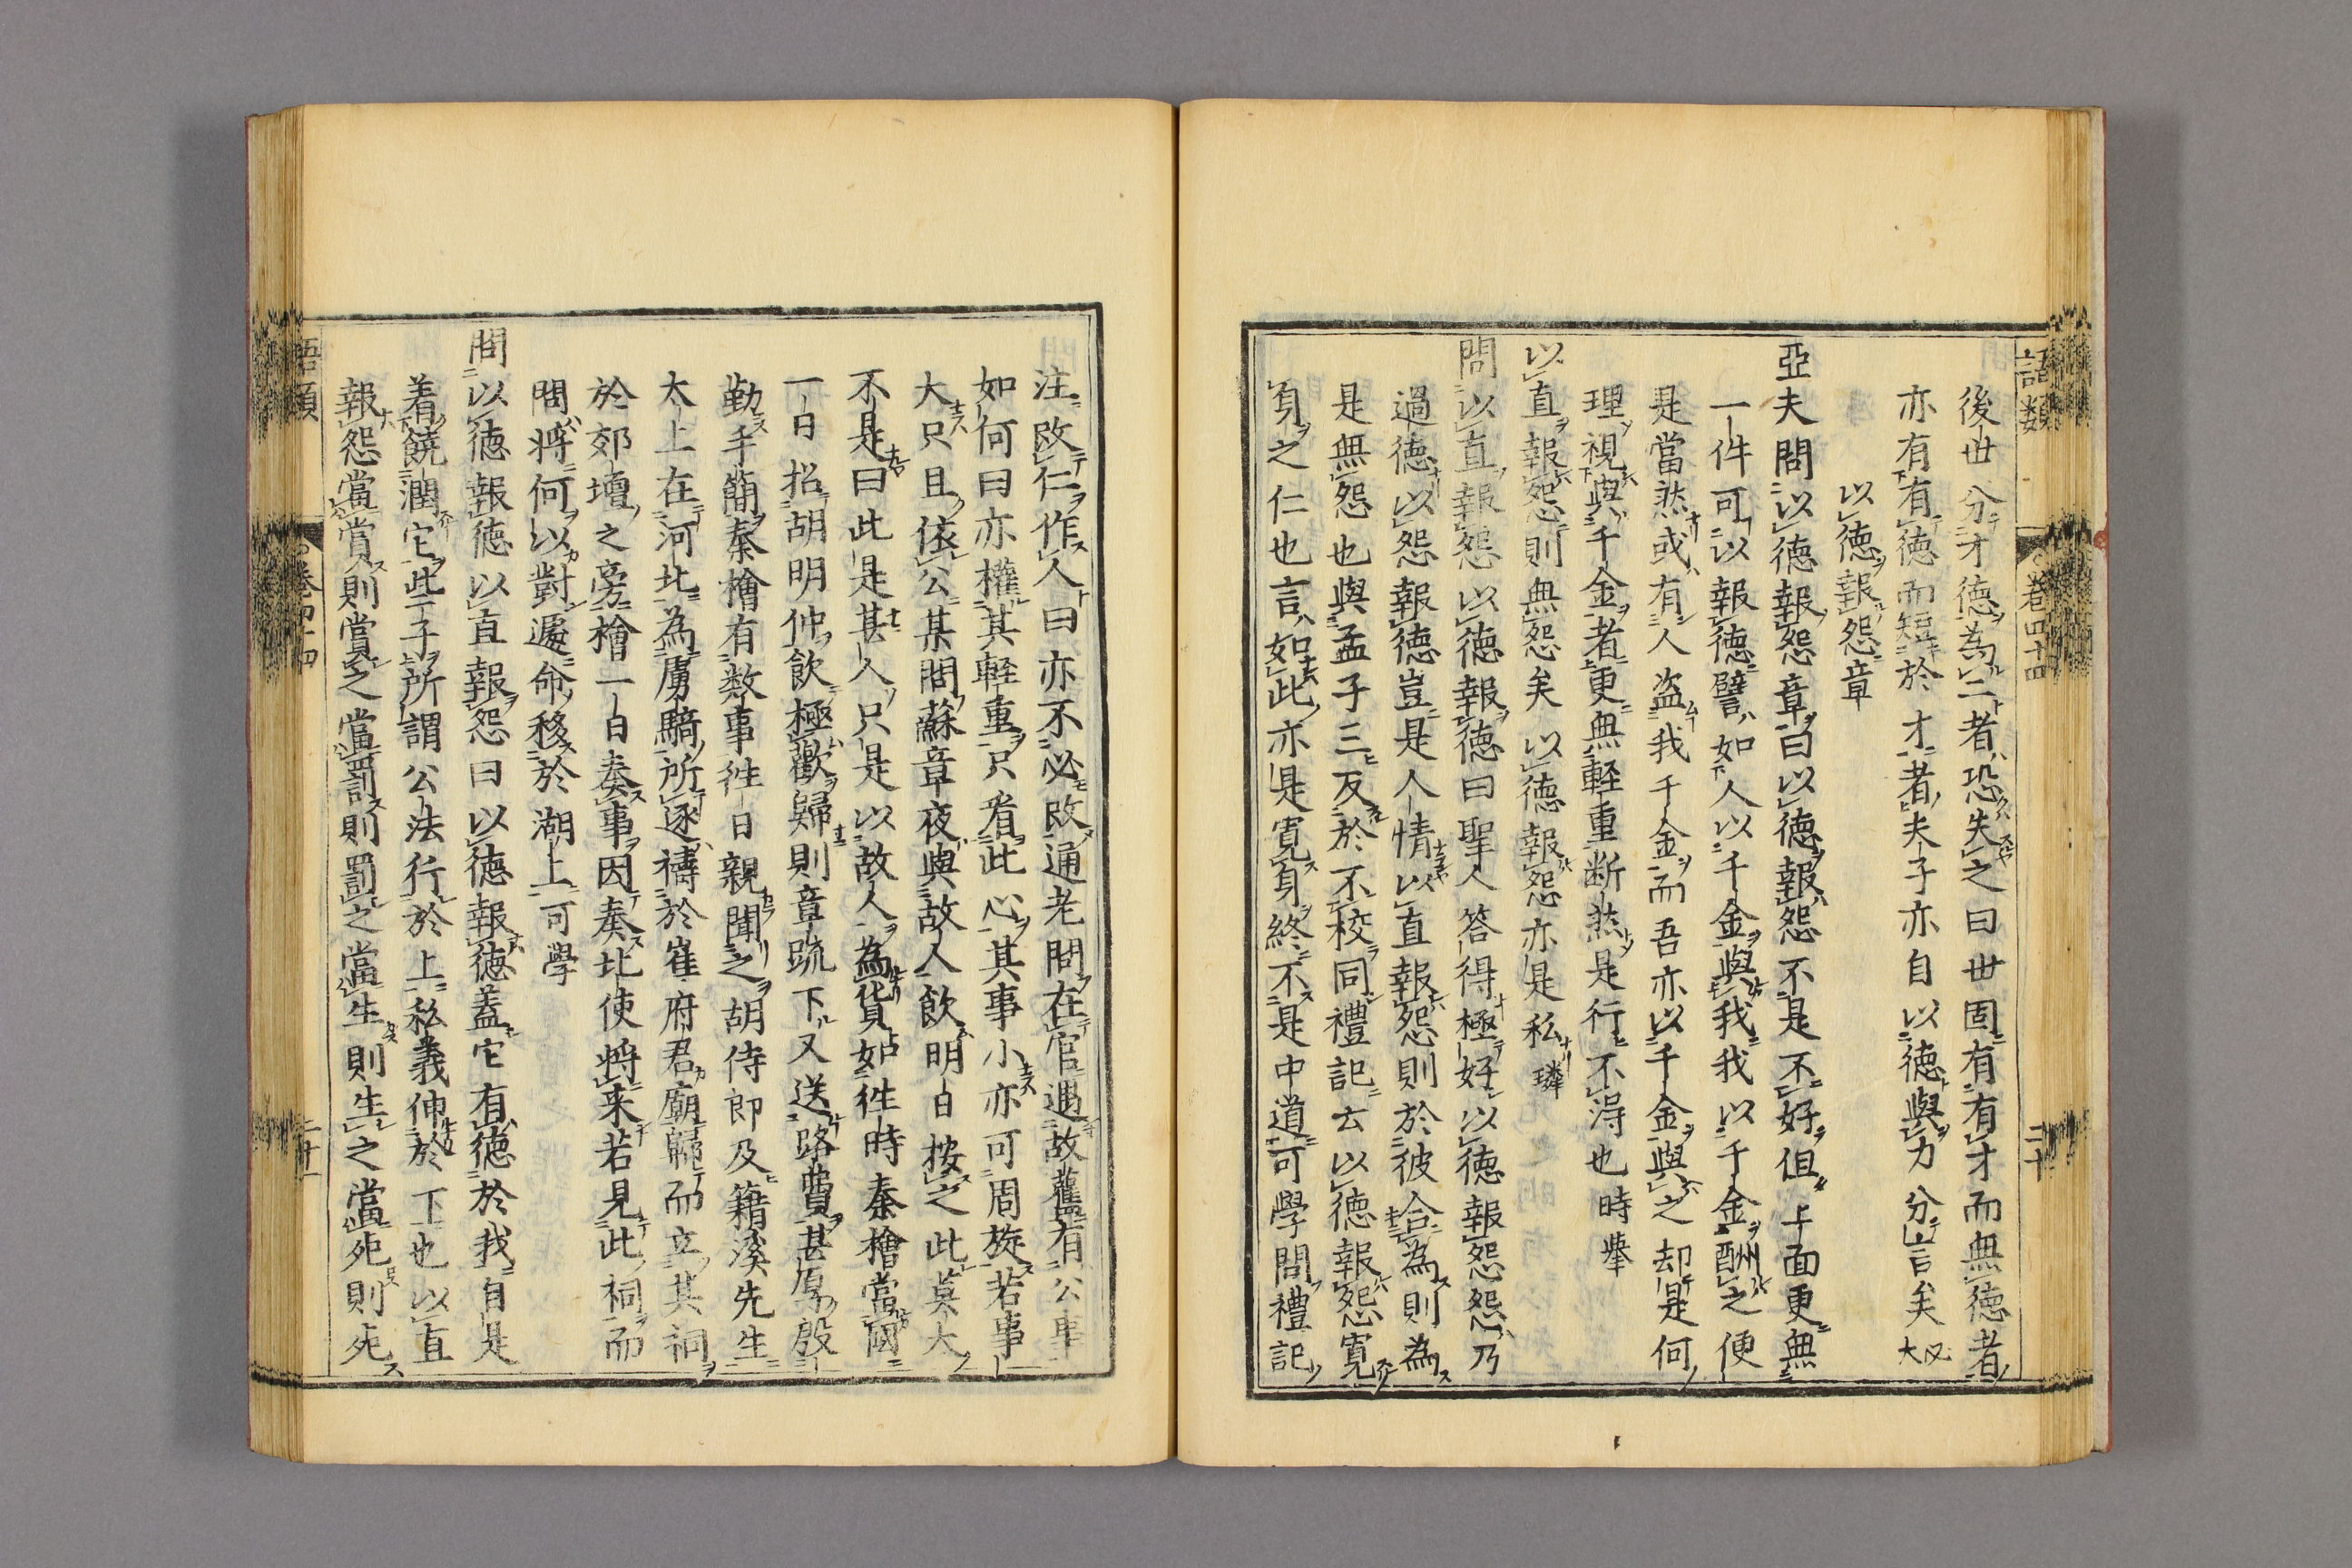 語類
卷四十四
二十
後世分才德為二者恐失之曰世固有有才而無德者
亦有有德而短於才者夫子亦自以德與力分言矣
以德報怨章
亞夫問以德報怨章曰以德報怨不是不好但上面更無
一件可以報德譬如人以千金與我我以千金酬之便
是當然或有人盗我千金而吾亦以千金與之却是何
理視與千金者更無軽重断然是行不淂也時舉
以直報怨則無怨矣以德報怨亦是私璘
問以直報怨以德報德曰聖人答得極好以德報怨怨乃
過德以怨報德豈是人情以直報怨則於彼合為則為
是無怨也與孟子三反於不校同禮記云以德報怨寛
身之仁也言如此亦是寛身終不是中道可學問禮記
注改仁作人曰亦不必改通老問在官遇故舊有公事
如何曰亦權其軽重只看此心其事小亦可周旋若事
大只且依公某問蘇章夜與故人飲明日按之此莫大
不是曰此是甚人只是以故人為貨如徃時秦檜當國
一日招胡明仲飲極歡歸則章疏下又送路費甚厚殷
勤手簡秦檜有数事徃日親聞之胡侍郎及籍溪先生
太上在河北為虜騎所逐禱於崔府君廟歸而立其祠
於郊壇之旁檜一日奏事因奏北使将来若見此祠而
問将何以對遽命移於湖上可學
問以德報德以直報怨曰以德報德蓋它有德於我自是
着饒潤它此子所謂公法行於上私義伸於下也以直
報怨當賞則賞之當罰則罰之當生則生之當死則死
語類
卷四十四
二十一